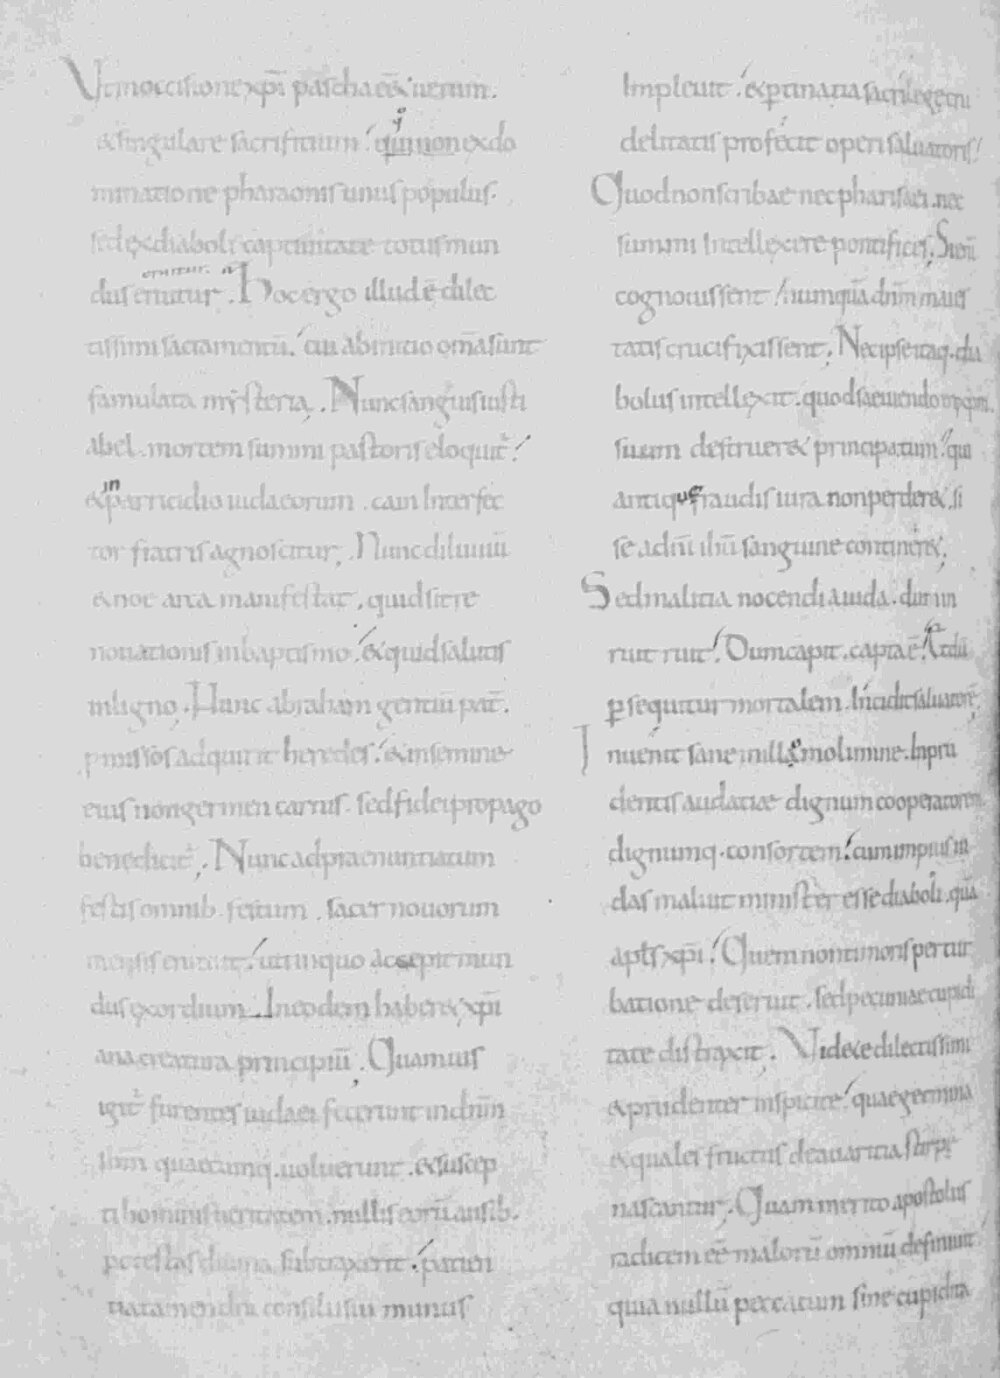 Ut in occisione xpi pascha e&' uerum.
& singulare sacrificium. quo non ex do
minatione pharaonis unus populus.
sed ex diaboli captiuitate totus mun
dus eruitur. Hoc ergo illud ē dilec
tissimi sacramentū. cui ab initio oma sunt
famulata mysteria. Nunc sanguis iusti
abel. mortem summi pastoris eloquit.
& in parricidio iudaeorum. cain Interfec
tor fratris agnoscitur; Nunc diluuiū
& noe arca manifestat, quid sit re
nouationis in baptismo. & quid salutis
in ligno. Hunc abraham gentiū pat.
pmissos adquirit heredes. & in semine
eius non germen carnis. sed fidei propago
benedicit; Nunc ad praenuntiatum
festis omnib. festum. sacer nouorum
mensis enituit. ut in quo accepit mun
dus exordium. In eodem haber& xpi
ana creatura principiū; Quamuis
igit furentes iudaei fecerunt in dnm
ihm quaecumq. uoluerunt. & suscep
ti hominis ueritatem. nullis eorū ausib.
potestas diuina subtraxerit. patien
tia tamen dni consilii sui munus
Impleuit. & ptinatia sacrilege cru
delitatis profecit operi saluatoris.
Quod non scribae nec pharisaei. nec
summi Intellexere pontifices; Si enī
cognouissent. numquā dnm maies
tatis crucifixissent; Nec ipse itaq. dia
bolus intellexit. quod saeuiendo in xpm.
suum destruer& principatum. qui
antique fraudis iura non perder&. si
se a dnī ihū sanguine contineret;
Sed malitia nocendi auida. dum in
ruit ruit. Dum capit. capta ē. & dū
p sequitur mortalem. Incidit saluatorē;
Inuenit sane in illo molimine. Inpru
dentis audatiae dignum cooperatorem
dignumq. consortem. cum impius iu
das maluit minister esse diaboli. quā
apls xpi. Quem non timoris pertur
batione deseruit. sed pecuniae cupidi
tate distraxit. Videte dilectissimi
& prudenter inspicite. quae germina
& qualei fructus de auaritia stirpe
nascantur. Quam merito apostolus
radicem eē malorū omniū definiuit
quia nullū peccatum sine cupidita